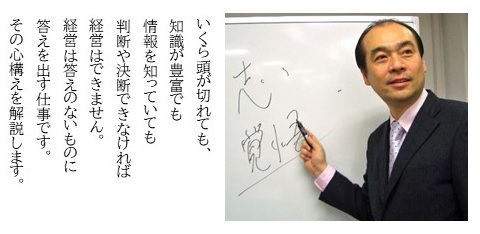 いくら頭が切れても、
知識が豊富でも
情報を知っていても
判断や決断できなければ
経営はできません。
経営は答えのないものに
答えを出す仕事です。
その心構えを解説します。
志、
覚悟